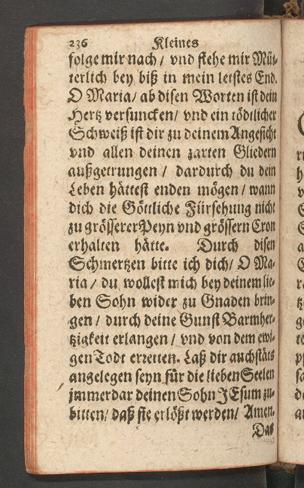 236 Kleines
folge mir nach / vnd stehe mir Müt-
terlich bey biß in mein letstes End.
O Maria / ab disen Worten ist dein
Hertz versuncken / vnd ein tödtlicher
Schweiß ist dir zu deinem Angesicht
vnd allen deinen zarten Gliedern
außgetrungen / dardurch du dein
Leben hättest enden mögen / wann
dich die Göttliche Fürsehung nicht
zu grösserer Peyn vnd grössern Cron
erhalten hätte. Durch disen
Schmertzen bitte ich dich / O Ma-
ria / du wollest mich bey deinem lie-
ben Sohn wider zu Gnaden brin-
gen / durch deine Gunst Barmher-
tzigkeit erlangen / vnd von dem ewi-
gen Todt erretten. Laß dir auch stäts
angelegen seyn für die lieben Seelen
jmmerdar deinen Sohn JEsum zu-
bitten / daß sie erlößt werden / Amen.
Das